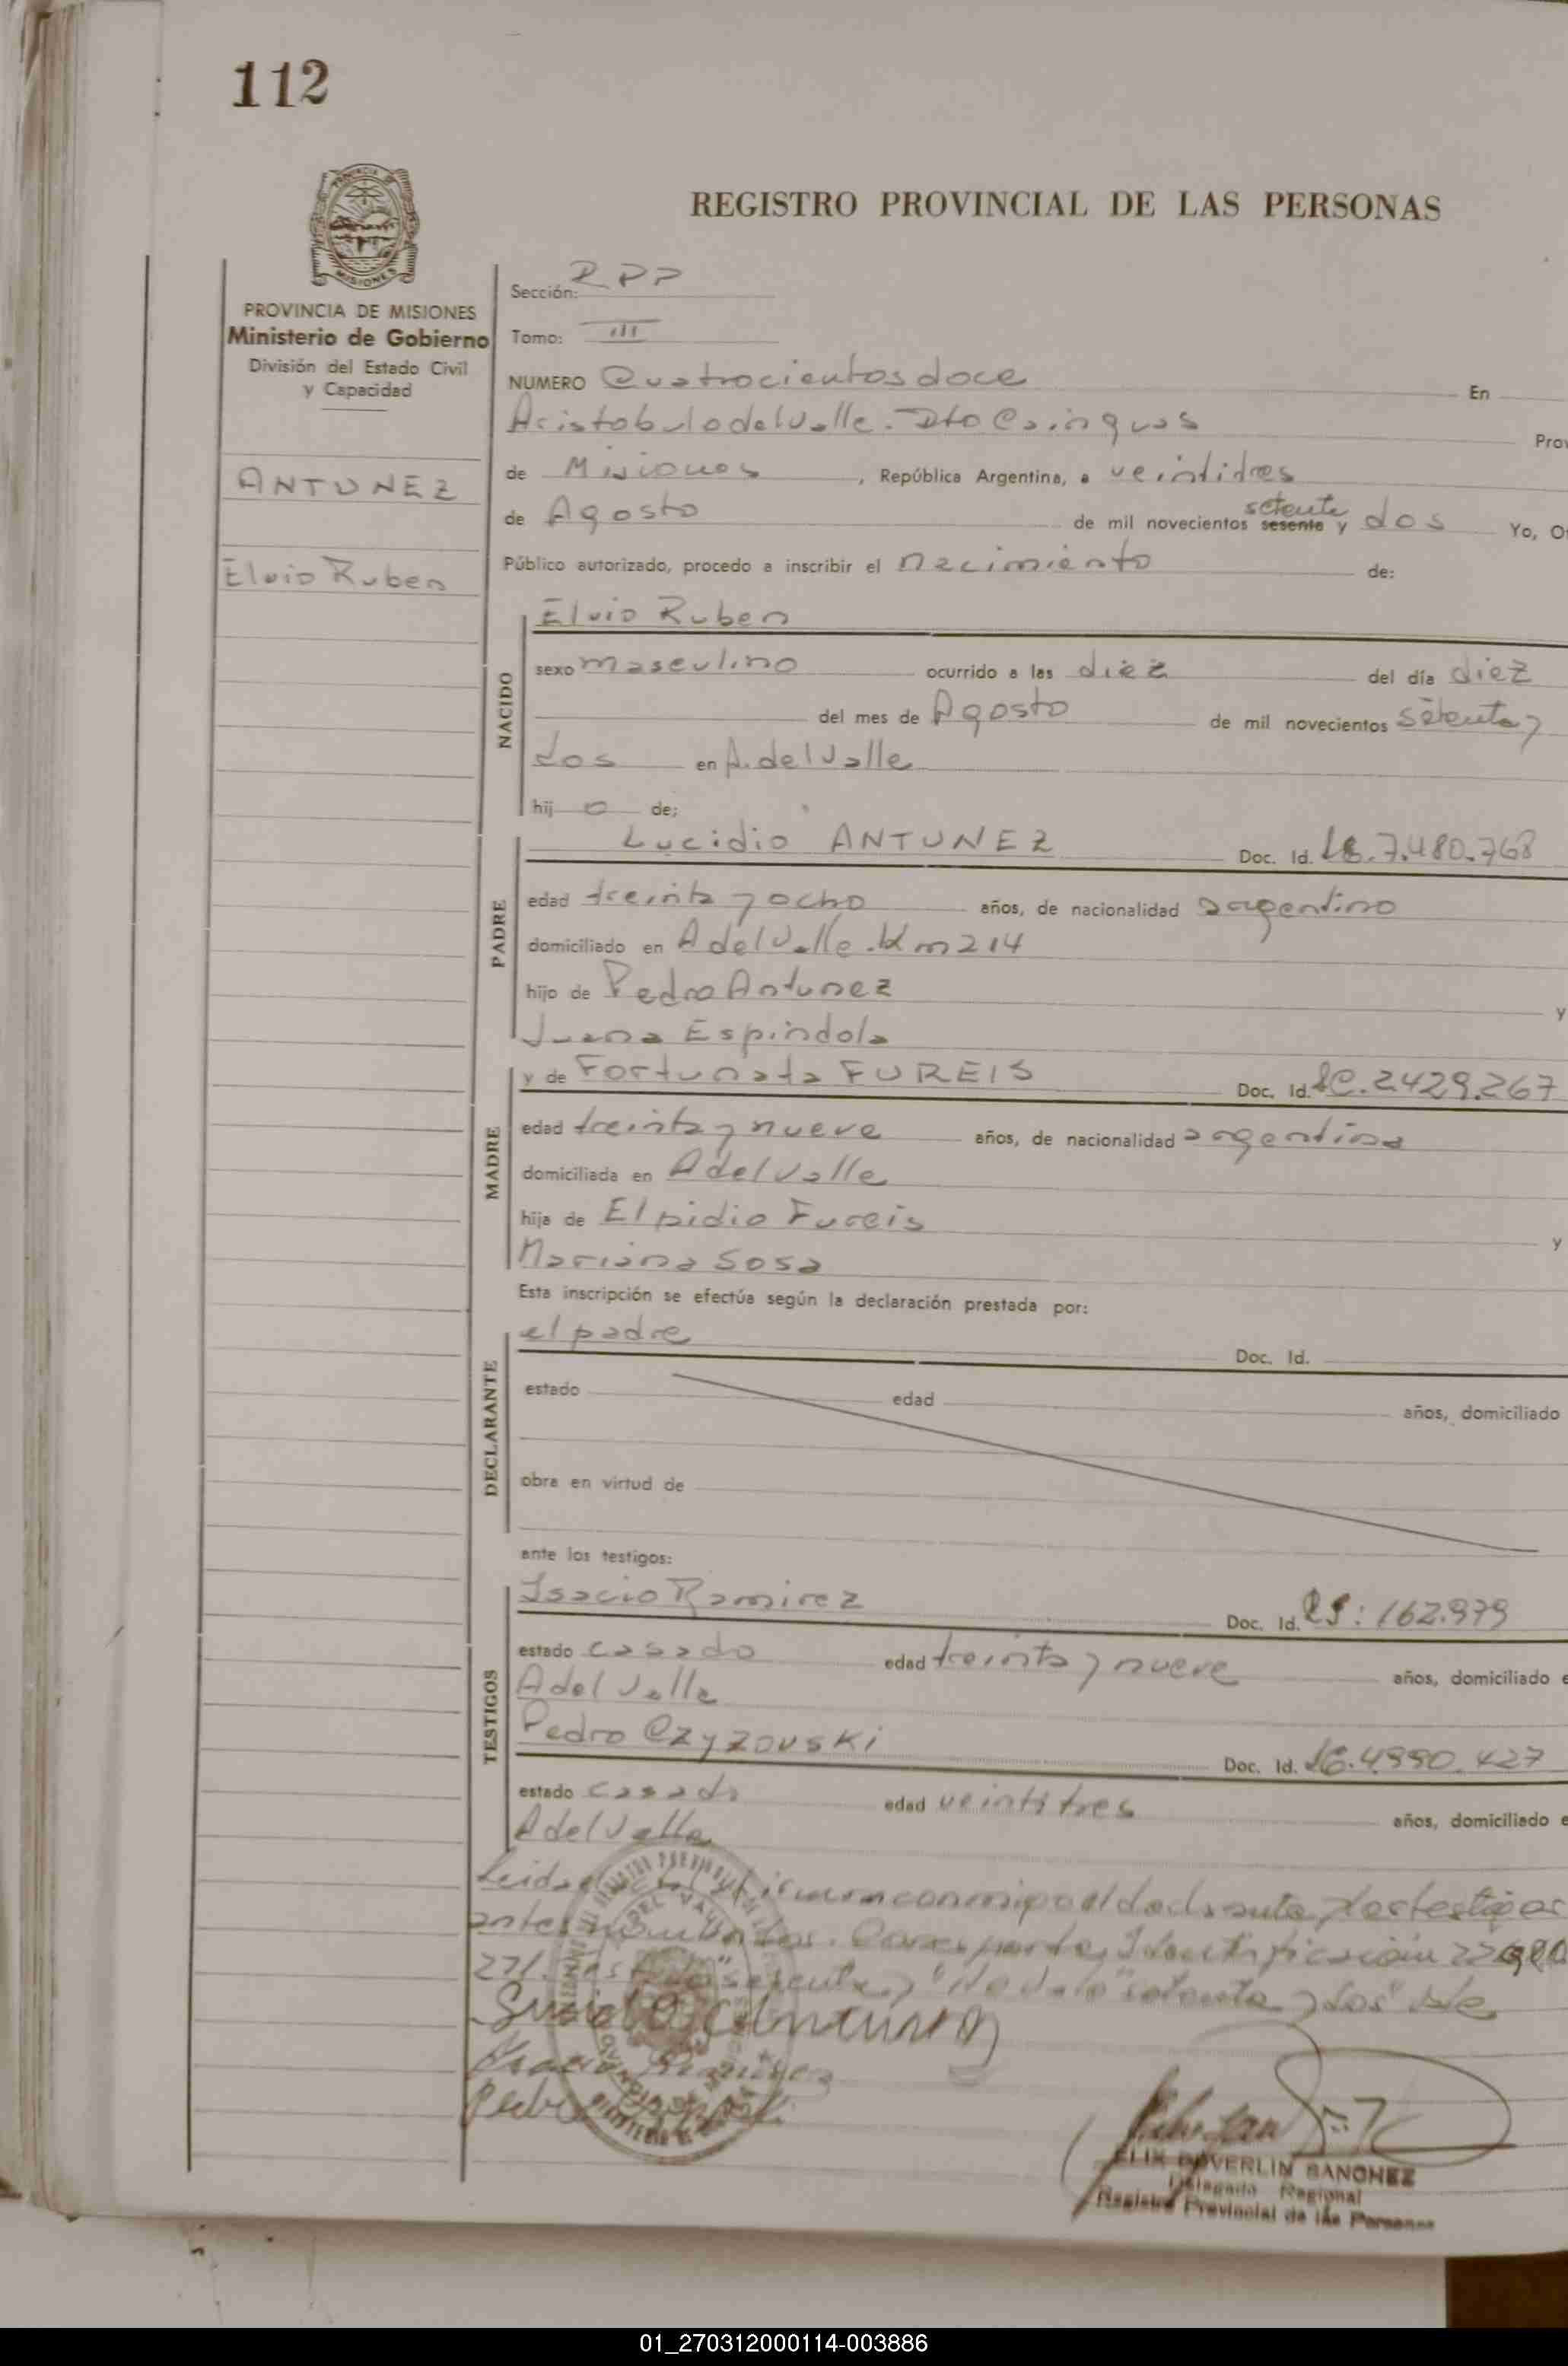 112
PROVINCIA DE MISIONES
REGISTRO PROVINCIAL DE LAS PERSONAS
PROVINCIA DE MISIONES
Ministerio de Gobierno
División del Estado Civil
y Capacidad
ANTUNEZ
Elvio Ruben
Sección: RPP
Tomo: III
NUMERO Quatrocientos doce En
Aristobulo del Valle. Dto Cainguas Prov
de Misiones, República Argentina, a veintitres
de Agosto de mil novecientos sesenta setenta y dos Yo, Of
Público autorizado, procedo a inscribir el nacimiento de:
NACIDO
Elvio Ruben
sexo masculino ocurrido a las diez del día diez
del mes de Agosto de mil novecientos setenta y
dos en A. del Valle
hijo de;
PADRE
Lucidio ANTUNEZ Doc. Id. 7.480.768
edad treinta y ocho años, de nacionalidad argentino
domiciliado en A del Valle. Km 214
hijo de Pedro Antunez y
Juana Espindola
MADRE
y de Fortunata FUREIS Doc. Id. 2.429.267
edad treinta y nueve años, de nacionalidad argentina
domiciliada en A del Valle
hija de Elpidio Fureis y
Mariana Sosa
Esta inscripción se efectúa según la declaración prestada por:
DECLARANTE
el padre Doc. Id.
estado edad años, domiciliado
obra en virtud de
ante los testigos:
TESTIGOS
Isacio Ramirez Doc. Id. 162.979
estado casado edad treinta y nueve años, domiciliado e
A del Valle
Pedro Czyzouski Doc. Id. 427
estado casado edad veintitres años, domiciliado e
A del Valle
Leida el acta firman conmigo el declarante y los testigos
antes nombrados. Identificación
"sesenta y" "setenta y dos" Vale
Antunez
Ramirez
Pedro
FELIX DOVERLIN SANCHEZ
Delegado Regional
Registro Provincial de las Personas
01_270312000114-003886